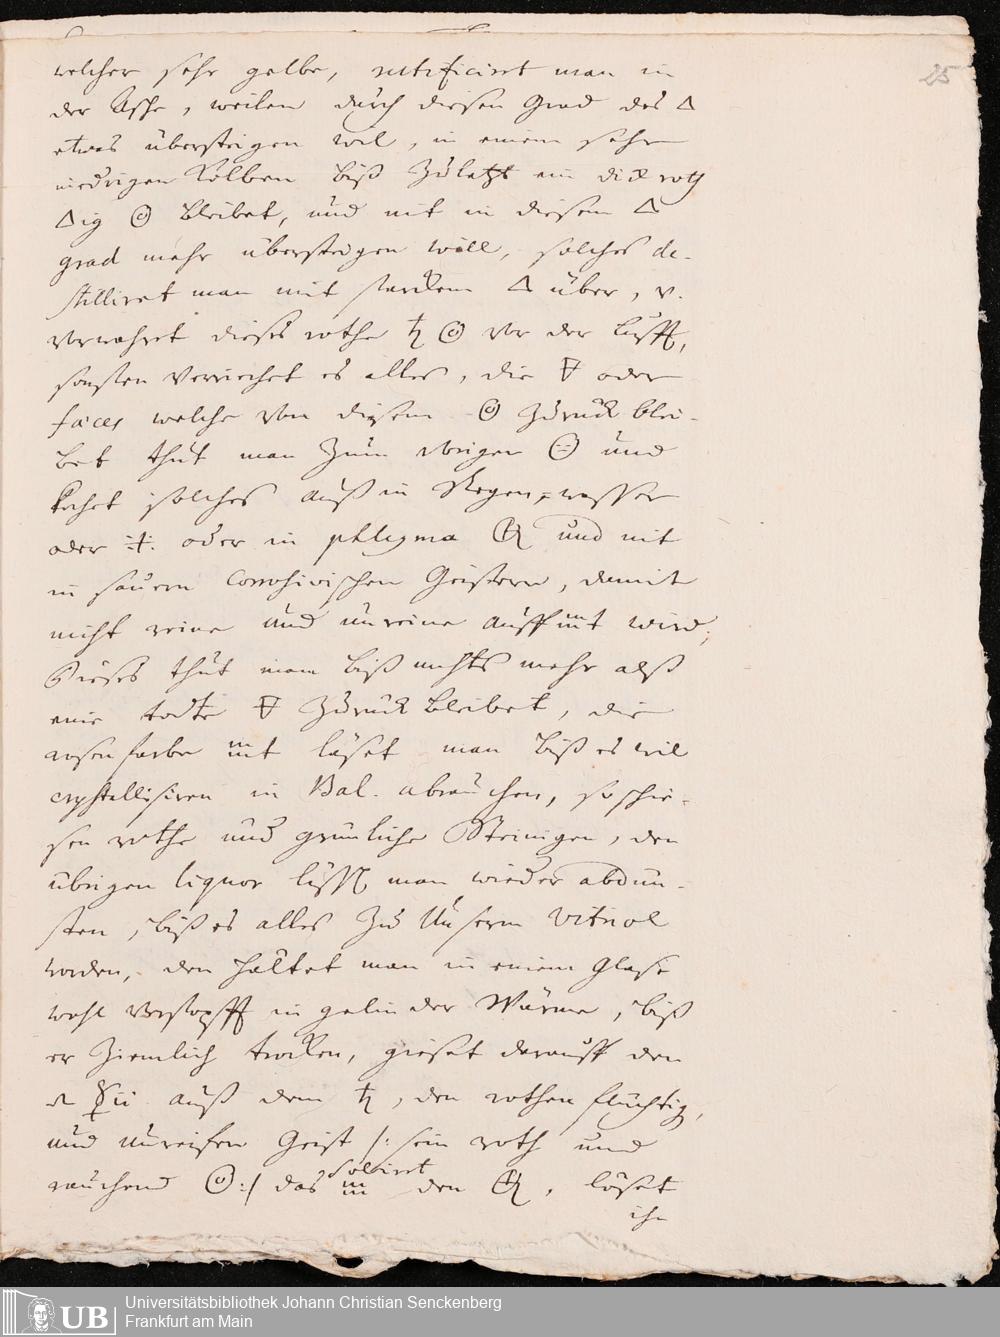 25
welcher sehr gelbe, rectificiret man in
der Asche, weilen durch diesen Grad des 🜂
etwas übersteigen wil, in einem sehr
niedrigen Kolben biß zuletzt ein dick roth
🜂ig bleibet, und nit in diesem 🜂
grad mehr übersteigen will, solches de-
stilliret man mit starkem 🜂 über, v.
verwahret dieses rothe ♄ vor der Lufft,
sonsten verriechet es alles, die 🜃 oder
fæces welche von diesem zurück blei-
bet thut man zum übrigen und
kochet solches auß in Regen-wasser
oder oder in phlegma und nit
in sauern Corrosivischen Geistern, damit
nicht reine und unreine auff wird,
Dieses thut man biß nichts mehr alß
eine todte 🜃 zurück bleibet, die
rosenfarbe läset man biß es wil
crystallisiren in Bal. abrauchen, so schie-
sen rothe und grünliche Steinigen, den
übrigen liquor läst man wieder abdun-
sten, biß es alles zu Unserm Vitriol
worden, den haltet man in einem Glase
wohl verstopfft in gelinder Wärme, biß
er ziemlich trocken, gieset darauff den
☿ii auß dem ♄, den rothen flüchtig,
und unreifen Geist /: sein roth und
rauchend :/ das solviret den , löset
ihn
Universitätsbibliothek Johann Christian Senckenberg
Frankfurt am Main
UB